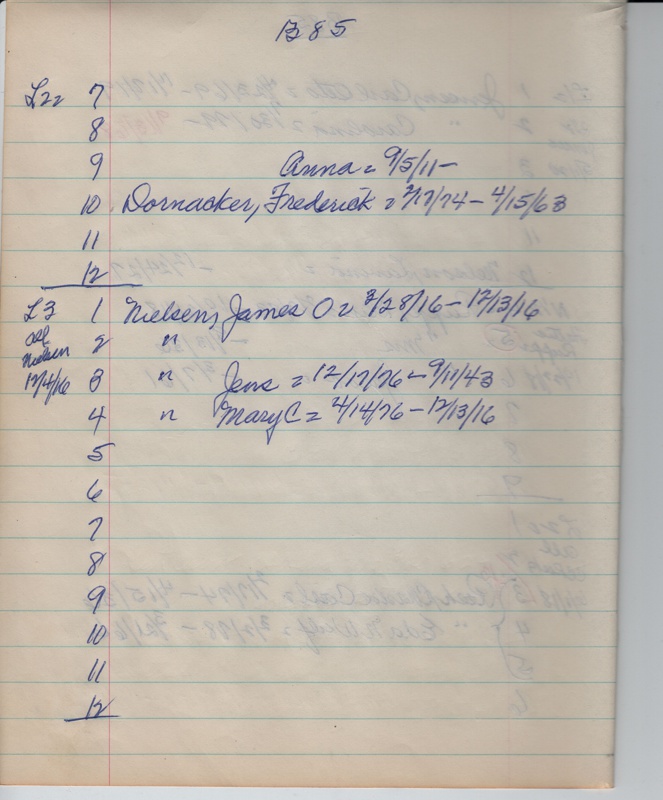 B 85
L22 7
8
9 Anna = 9/5/11 -
10 Dornacker, Frederick = 2/17/74 - 4/15/63
11
12
L3 1 Nielsen, James O = 3/28/16 - 12/13/16
all 2 "
Nielsen
12/4/16 3 " Jens = 12/17/76 - 9/11/43
4 " Mary C = 4/14/76 - 12/13/16
5
6
7
8
9
10
11
12